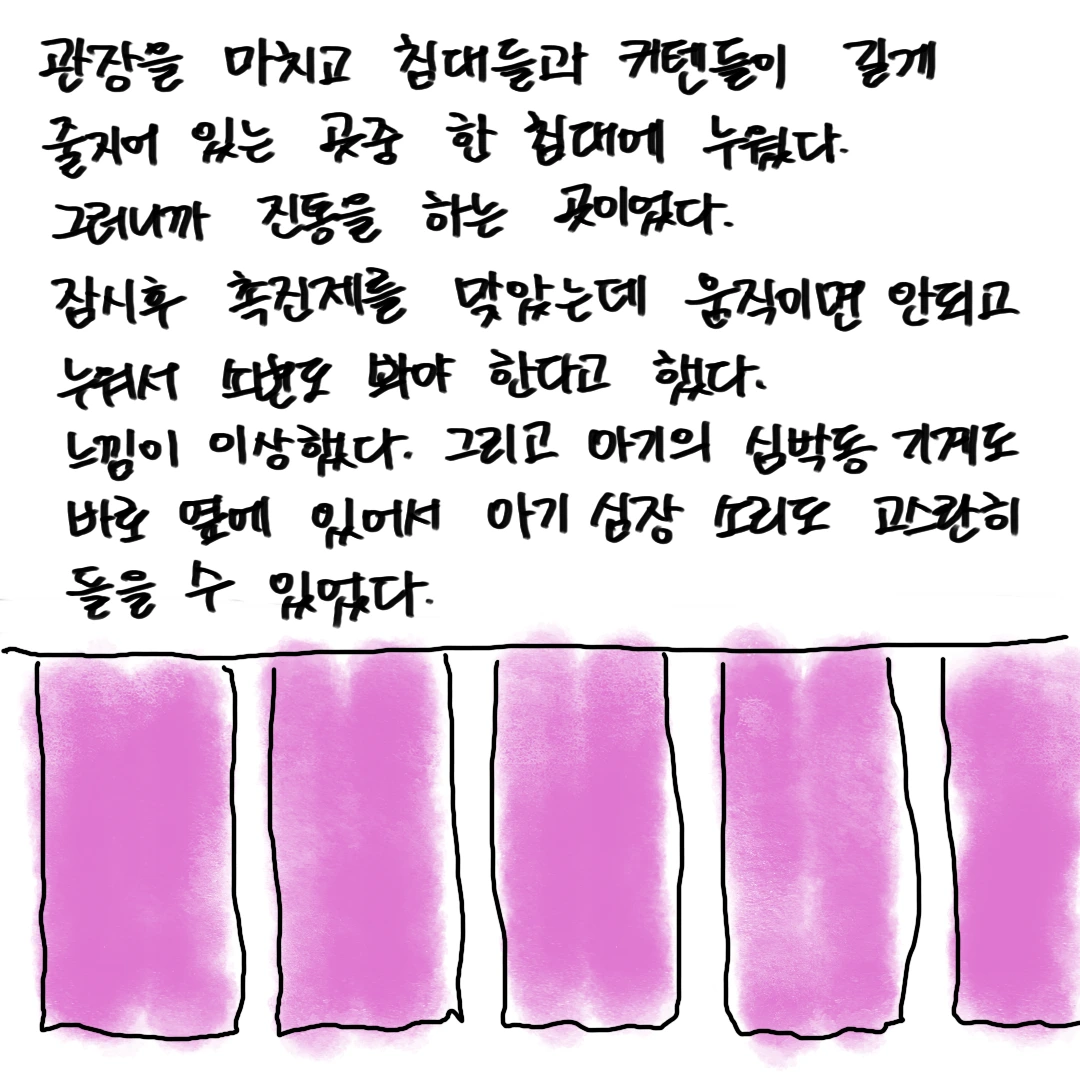 관장을 마치고 침대들과 커텐들이 길게
줄지어 있는 곳중 한 침대에 누웠다.
그러니까 진통을 하는 곳이었다.
잠시후 촉진제를 맞았는데 움직이면 안되고
누워서 소변도 봐야 한다고 했다.
느낌이 이상했다. 그리고 아기의 심박동 기계도
바로 옆에 있어서 아기 심장 소리도 고스란히
들을 수 있었다.